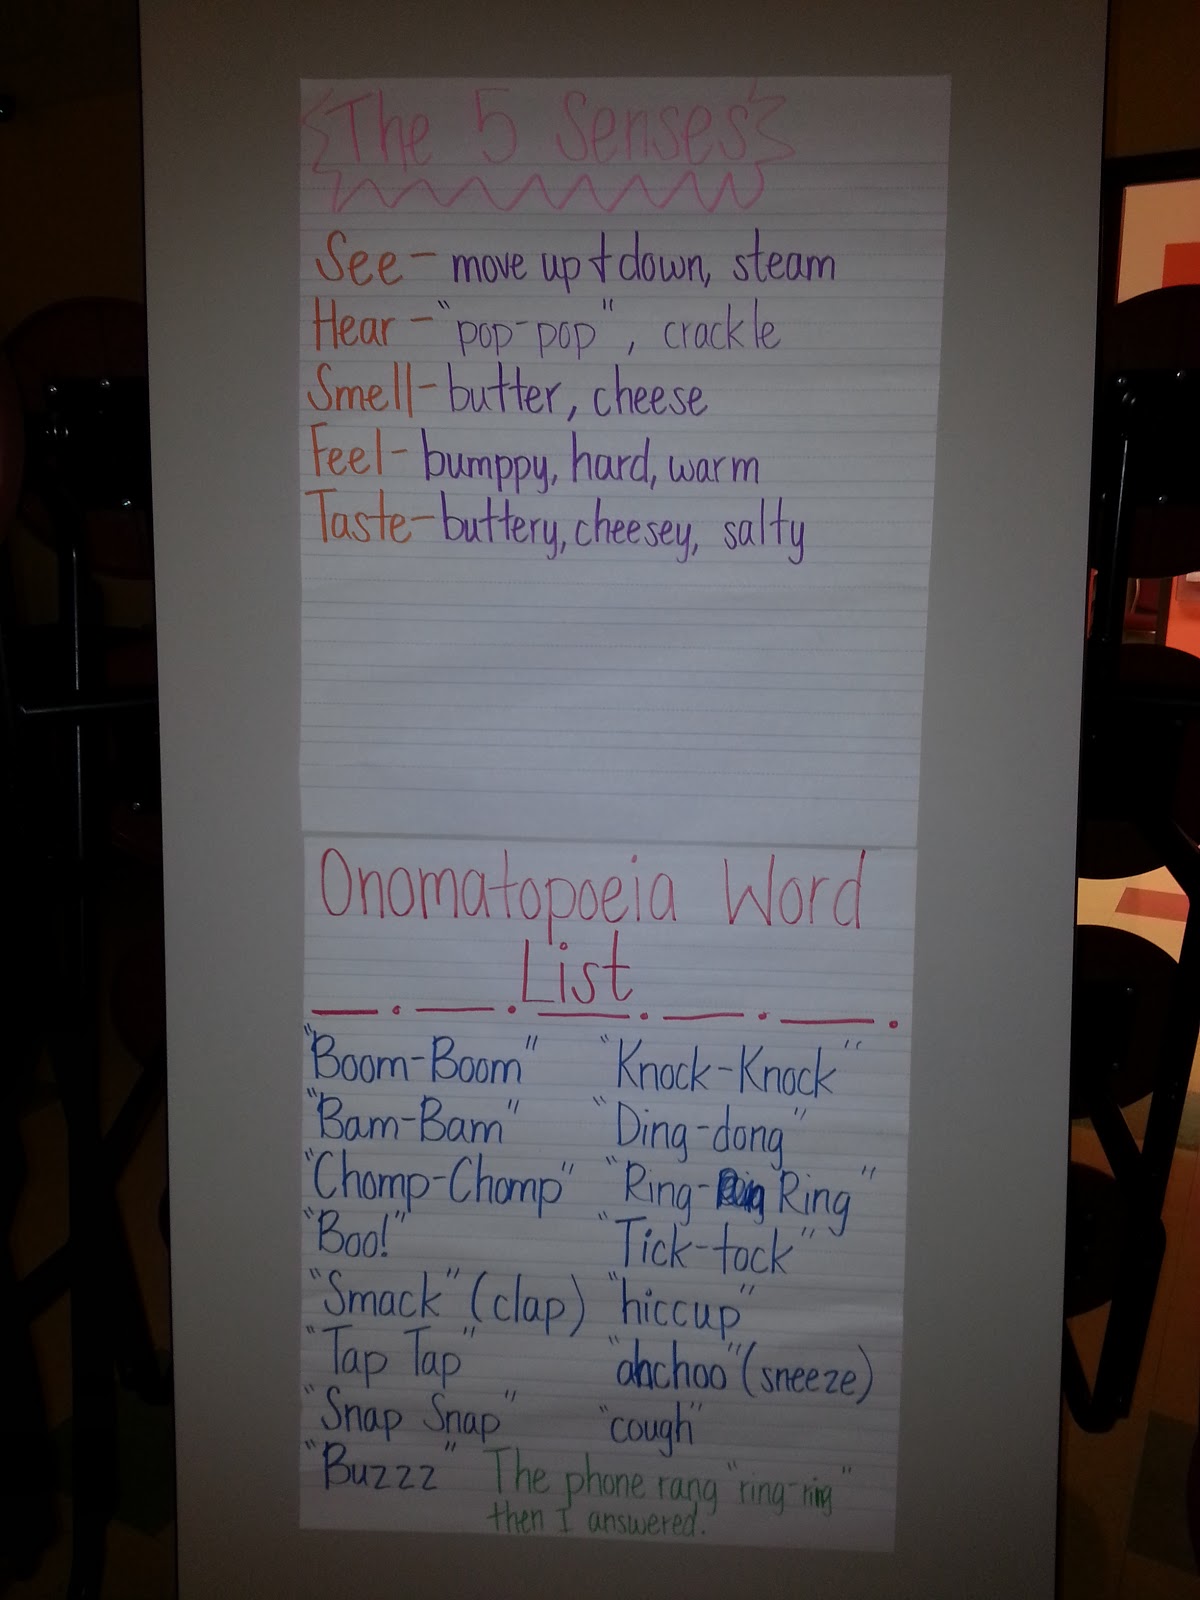 The 5 Senses
See - move up + down, steam
Hear - "pop-pop", crackle
Smell - butter, cheese
Feel - bumppy, hard, warm
Taste - buttery, cheesey, salty
Onomatopoeia Word
List
"Boom-Boom" "Knock-Knock"
"Bam-Bam" "Ding-dong"
"Chomp-Chomp" "Ring- Ring"
"Boo!" "Tick-tock"
"Smack" (clap) "hiccup"
"Tap Tap" "ahchoo" (sneeze)
"Snap Snap" "cough"
"Buzzz" The phone rang "ring-ring"
then I answered.